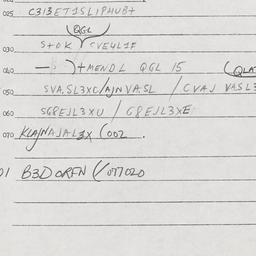 025 C313ET1SLIPHUB+
QGL
030 S+OK SVE4L1F
040 )+MENDL QGL 15 (QLA
050 SVA,SL3XC/AJNVASL / CVAJ VASL3
060 SG8EJL3XU / G8EJL3XE
070 KLAJNAJAL3X (002 .
01 B3D ORFN (/077020